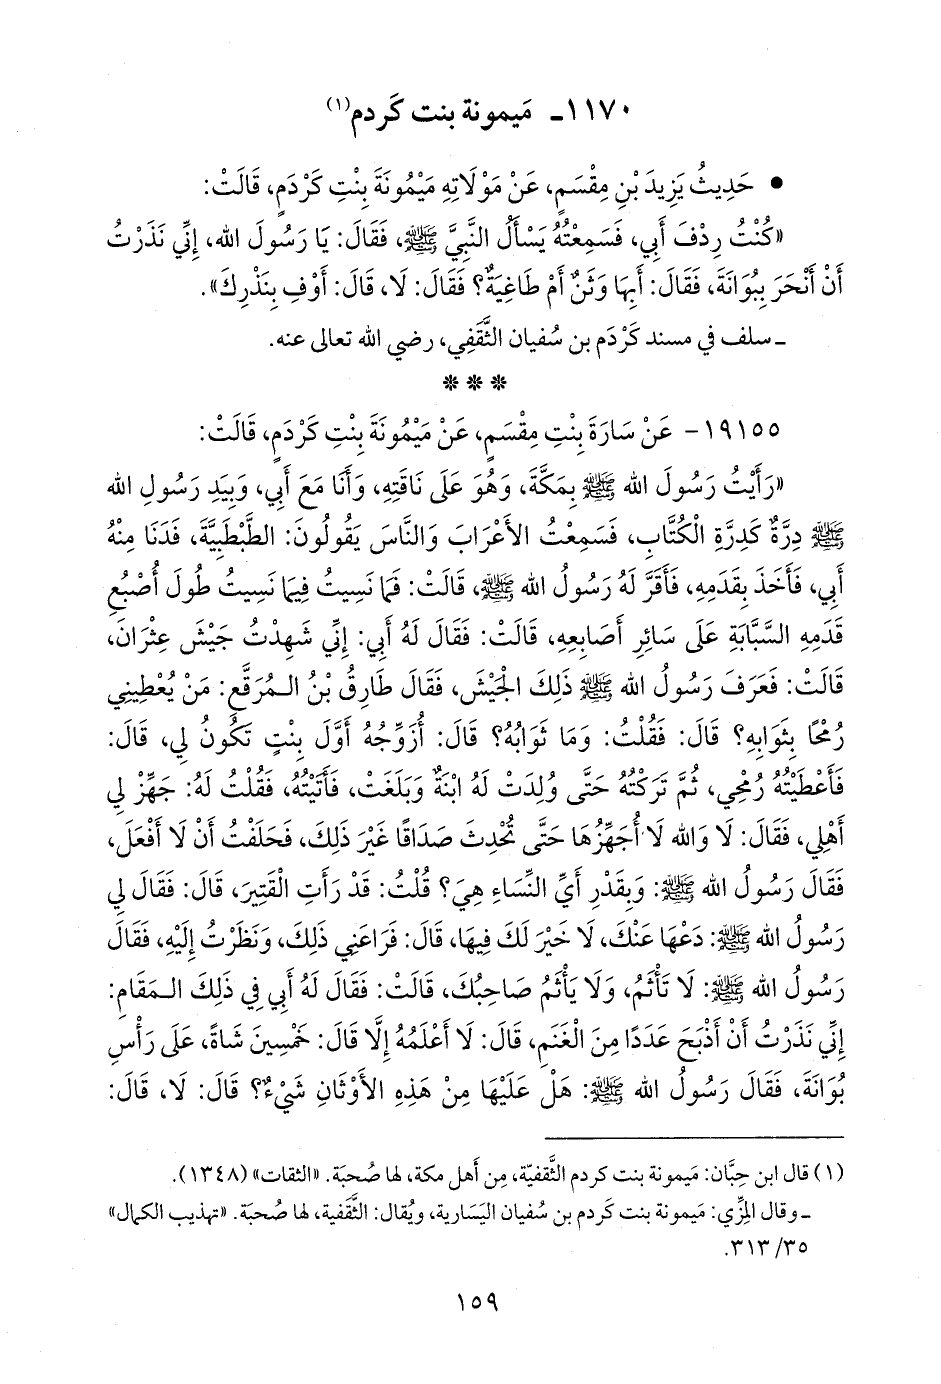 ١١٧٠ـ مَيمونة بنت كَردم(١)
• حَدِيثُ يَزِيدَ بْنِ مِقْسَمٍ، عَنْ مَوْلَاتِهِ مَيْمُونَةَ بِنْتِ كَرْدَمٍ، قَالَتْ:
«كُنْتُ رِدْفَ أَبِي، فَسَمِعْتُهُ يَسْأَلُ النَّبِيَّ ﷺ، فَقَالَ: يَا رَسُولَ الله، إِنِّي نَذَرْتُ
أَنْ أَنْحَرَ بِبُوَانَةَ، فَقَالَ: أَبِهَا وَثَنٌ أَمْ طَاغِيَةٌ؟ فَقَالَ: لَا، قَالَ: أَوْفِ بِنَذْرِكَ».
ـ سلف في مسند كَرْدَم بن سُفيان الثَّقَفِي، رضي الله تعالى عنه.
***
١٩١٥٥ - عَنْ سَارَةَ بِنْتِ مِقْسَمٍ، عَنْ مَيْمُونَةَ بِنْتِ كَرْدَمٍ، قَالَتْ:
«رَأَيْتُ رَسُولَ الله ﷺ بِمَكَّةَ، وَهُوَ عَلَى نَاقَتِهِ، وَأَنَا مَعَ أَبِي، وَبِيَدِ رَسُولِ الله
ﷺ دِرَّةٌ كَدِرَّةِ الْكُتَّابِ، فَسَمِعْتُ الأَعْرَابَ وَالنَّاسَ يَقُولُونَ: الطَّبْطَبِيَّةَ، فَدَنَا مِنْهُ
أَبِي، فَأَخَذَ بِقَدَمِهِ، فَأَقَرَّ لَهُ رَسُولُ الله ﷺ، قَالَتْ: فَمَا نَسِيتُ فِيمَا نَسِيتُ طُولَ أُصْبُعِ
قَدَمِهِ السَّبَّابَةِ عَلَى سَائِرِ أَصَابِعِهِ، قَالَتْ: فَقَالَ لَهُ أَبِي: إِنِّي شَهِدْتُ جَيْشَ عِثْرَانَ،
قَالَتْ: فَعَرَفَ رَسُولُ الله ﷺ ذَلِكَ الجَيْشَ، فَقَالَ طَارِقُ بْنُ الـمُرَقَّعِ: مَنْ يُعْطِينِي
رُمْحًا بِثَوَابِهِ؟ قَالَ: فَقُلْتُ: وَمَا ثَوَابُهُ؟ قَالَ: أُزَوِّجُهُ أَوَّلَ بِنْتٍ تَكُونُ لِي، قَالَ:
فَأَعْطَيْتُهُ رُمْحِي، ثُمَّ تَرَكْتُهُ حَتَّى وُلِدَتْ لَهُ ابْنَةٌ وَبَلَغَتْ، فَأَتَيْتُهُ، فَقُلْتُ لَهُ: جَهِّزْ لِي
أَهْلِي، فَقَالَ: لَا وَالله لَا أُجَهِّزُهَا حَتَّى تُحْدِثَ صَدَاقًا غَيْرَ ذَلِكَ، فَحَلَفْتُ أَنْ لَا أَفْعَلَ،
فَقَالَ رَسُولُ الله ﷺ: وَبِقَدْرِ أَيِّ النِّسَاءِ هِيَ؟ قُلْتُ: قَدْ رَأَتِ الْقَتِيرَ، قَالَ: فَقَالَ لِي
رَسُولُ الله ﷺ: دَعْهَا عَنْكَ، لَا خَيْرَ لَكَ فِيهَا، قَالَ: فَرَاعَنِي ذَلِكَ، وَنَظَرْتُ إِلَيْهِ، فَقَالَ
رَسُولُ الله ﷺ: لَا تَأْثَمُ، وَلَا يَأْثَمُ صَاحِبُكَ، قَالَتْ: فَقَالَ لَهُ أَبِي فِي ذَلِكَ الـمَقَامِ:
إِنِّي نَذَرْتُ أَنْ أَذْبَحَ عَدَدًا مِنَ الْغَنَمِ، قَالَ: لَا أَعْلَمُهُ إِلَّا قَالَ: خَمْسِينَ شَاةً، عَلَى رَأْسِ
بُوَانَةَ، فَقَالَ رَسُولُ الله ﷺ: هَلْ عَلَيْهَا مِنْ هَذِهِ الأَوْثَانِ شَيْءٌ؟ قَالَ: لَا، قَالَ:
(١) قال ابن حِبَّان: مَيمونة بنت كردم الثَّقفيّة، مِن أَهل مكة، لها صُحبَة. «الثقات» (١٣٤٨).
ـ وقال المِزِّي: مَيمونة بنت كَردم بن سُفيان اليَسارية، ويُقال: الثَّقفية، لها صُحبَة. «تهذيب الكمال»
٣٥/ ٣١٣.
١٥٩